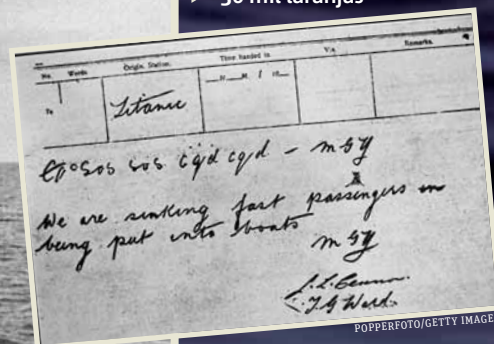 30 mil laranjas
No. Words Origin. Station. Time handed in Via Remarks.
To Titanic H. M. 19
SOS SOS cqd cqd - MGY
We are sinking fast passengers
being put into boats
MGY
POPPERFOTO/GETTY IMAGE